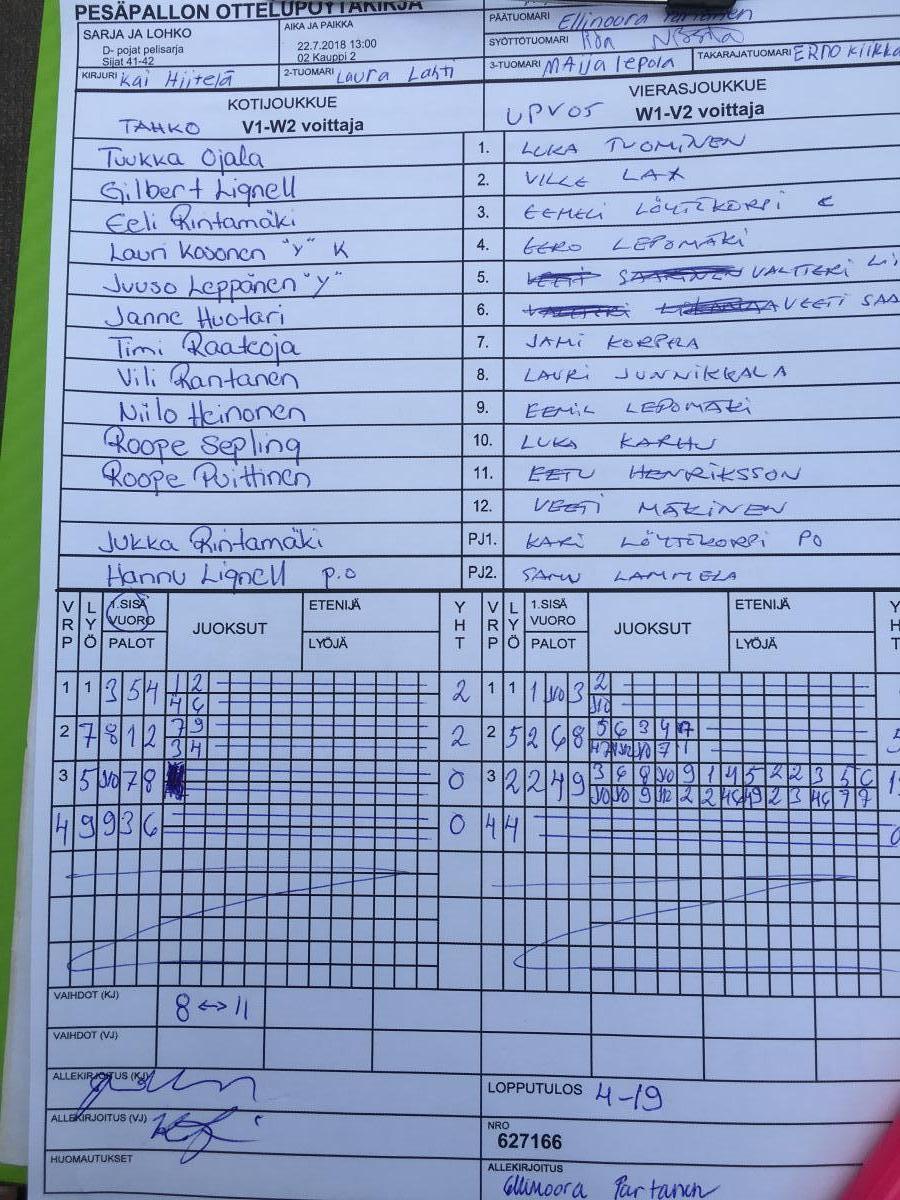 PESÄPALLON OTTELUPÖYTÄKIRJA
SARJA JA LOHKO
D- pojat pelisarja
Sijat 41-42
AIKA JA PAIKKA
22.7.2018 13:00
02 Kauppi 2
PÄÄTUOMARI Ellinoora Partanen
SYÖTTÖTUOMARI
KIRJURI Kai Hiitelä
2-TUOMARI Laura Lahti
3-TUOMARI Maija Lepola
TAKARAJATUOMARI
KOTIJOUKKUE
TAHKO V1-W2 voittaja
VIERASJOUKKUE
UPV05 W1-V2 voittaja
Tuukka Ojala 1. LUKA TUOMINEN
Gilbert Lignell 2. VILLE LAX
Eeli Rintamäki 3. EEMELI LÖYTÖKORPI
Lauri Kosonen "Y" K 4. EERO LEPOMÄKI
Juuso Leppänen "Y" 5. VALTTERI
Janne Huotari 6. VEETI SAA
Timi Raatoja 7. JAMI KORPELA
Vili Rantanen 8. LAURI JUNNIKKALA
Niilo Heinonen 9. EEMIL LEPOMÄKI
Roope Sepling 10. LUKA KARHU
Roope Puittinen 11. EETU HENRIKSSON
12. VEETI MÄKINEN
Jukka Rintamäki PJ1. KARI LÖYTÖKORPI PO
Hannu Lignell p.o PJ2. SAMU LAMMELA
VRP LYÖ 1.SISÄ VUORO PALOT JUOKSUT ETENIJÄ LYÖJÄ YHT VRP LYÖ 1.SISÄ VUORO PALOT JUOKSUT ETENIJÄ LYÖJÄ YHT
1 1 3 5 4 1 2 2 1 1 1 10 3 2
4 6 10
2 7 8 1 2 7 9 2 2 5 2 6 8 5 6 3 4
3 4
3 5 10 7 8 0 3 2 2 4 9 3 6 8 10 9 1 4 5 2 2 3 5 6
4 9 9 3 6 0 4 4
VAIHDOT (KJ) 8 ↔ 11
VAIHDOT (VJ)
ALLEKIRJOITUS (KJ)
LOPPUTULOS 4-19
ALLEKIRJOITUS (VJ)
NRO
627166
HUOMAUTUKSET
ALLEKIRJOITUS
Ellinoora Partanen